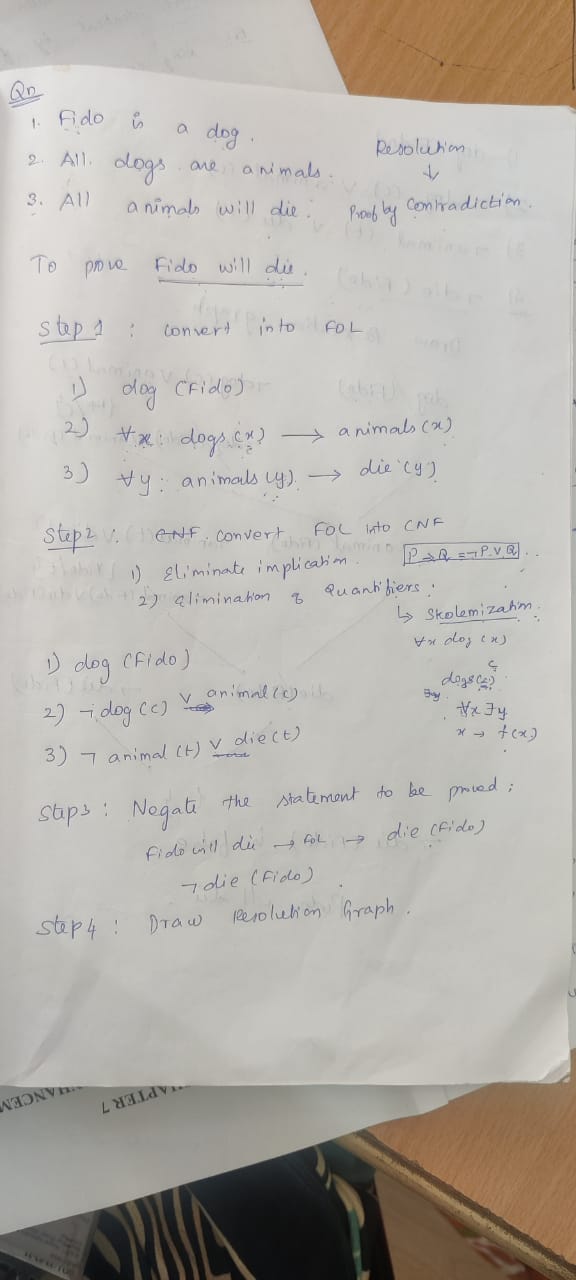 Qn
1. Fido is a dog.
2. All dogs are animals.
3. All animals will die.
Resolution
↓
Proof by Contradiction.
To prove Fido will die.
Step 1 : convert into FOL
1) dog (Fido)
2) ∀x : dogs (x) → animals (x)
3) ∀y : animals (y) → die (y)
Step2 : CNF. convert FOL into CNF
1) Eliminate implication. P→Q = ¬P ∨ Q
2) elimination of Quantifiers :
↳ Skolemization.
∀x dog (x)
1) dog (Fido)
2) ¬dog (c) ∨ animal (c)
3) ¬ animal (t) ∨ die (t)
c
dogs(x)
∃y
∀x ∃y
x → f(x)
Step3 : Negate the statement to be proved ;
Fido will die → FOL → die (Fido)
¬ die (Fido)
Step 4 : Draw Resolution Graph.
CHAPTER 7